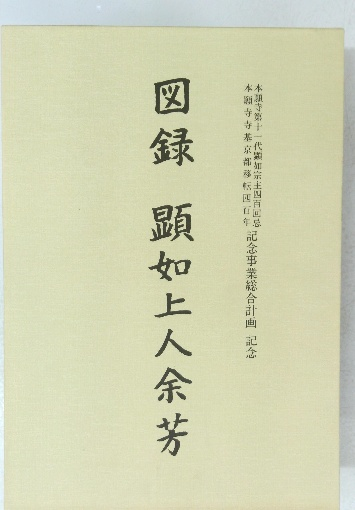 本願寺第十一代顕如宗主四百回忌
本願寺寺基京都移転四百年
記念事業総合計画 記念
図録 顕如上人余芳